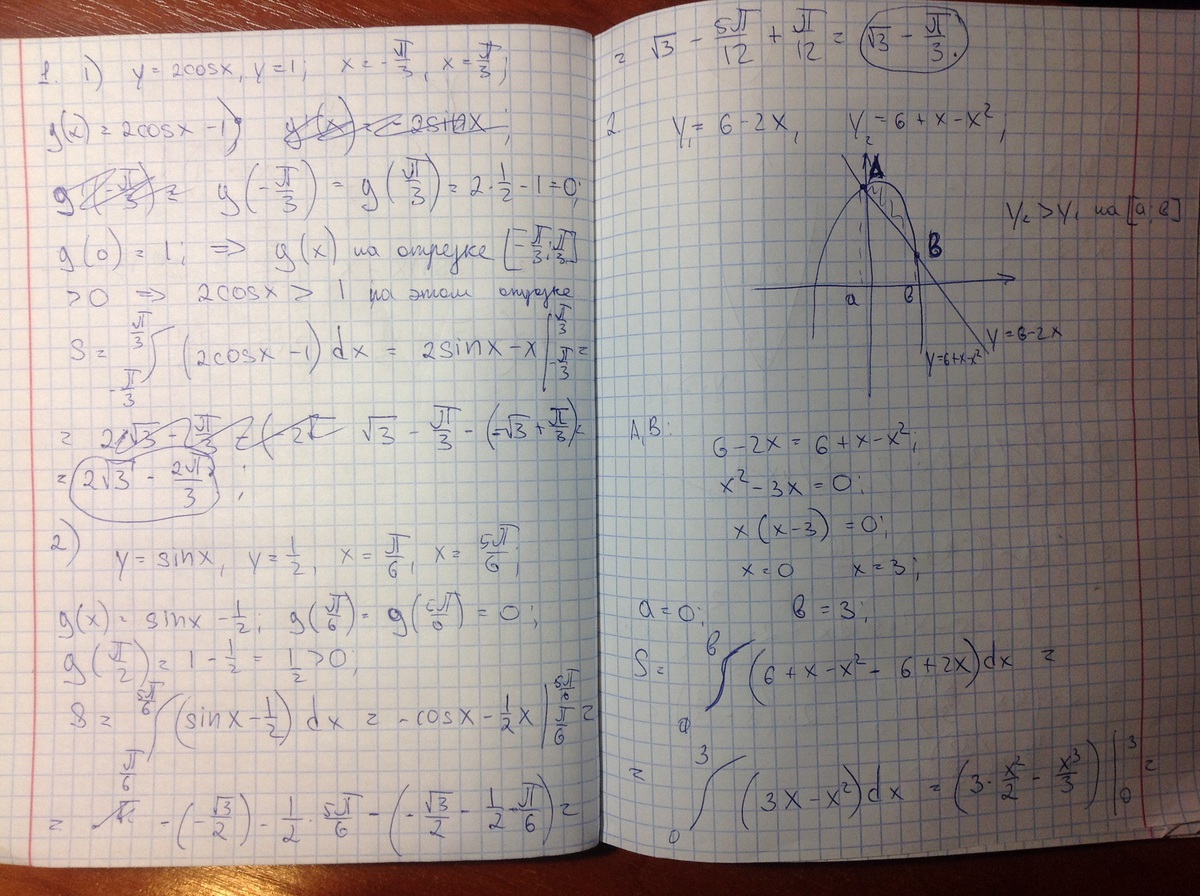 1. 1) y = 2cosx, y = 1; x = -π/3, x = π/3;
g(x) = 2cosx - 1; g'(x) = -2sinx;
g'(-π/3) = g(-π/3) = g(π/3) = 2·1/2 - 1 = 0;
g(0) = 1; => g(x) на отрезке [-π/3; π/3]
>0 => 2cosx > 1 на этом отрезке
S = ∫_{-π/3}^{π/3} (2cosx - 1) dx = 2sinx - x |_{-π/3}^{π/3} =
= √3 - π/3 - (-√3 + π/3) =
= 2√3 - 2π/3 ;
2) y = sinx, y = 1/2, x = π/6, x = 5π/6;
g(x) = sinx - 1/2; g(π/6) = g(5π/6) = 0;
g(π/2) = 1 - 1/2 = 1/2 > 0;
S = ∫_{π/6}^{5π/6} (sinx - 1/2) dx = -cosx - 1/2 x |_{π/6}^{5π/6} =
= -(-√3/2) - 1/2 · 5π/6 - (-√3/2 - 1/2 · π/6) =
= √3 - 5π/12 + π/12 = √3 - π/3.
2 y₁ = 6 - 2x, y₂ = 6 + x - x²;
A
y₂ > y₁ на [a; в]
B
a в
y = 6 - 2x
y = 6 + x - x²
A, B:
6 - 2x = 6 + x - x²;
x² - 3x = 0;
x(x - 3) = 0;
x = 0 x = 3;
a = 0; в = 3;
S = ∫_{a}^{в} (6 + x - x² - 6 + 2x) dx =
= ∫_{0}^{3} (3x - x²) dx = (3 · x²/2 - x³/3) |_{0}^{3} =